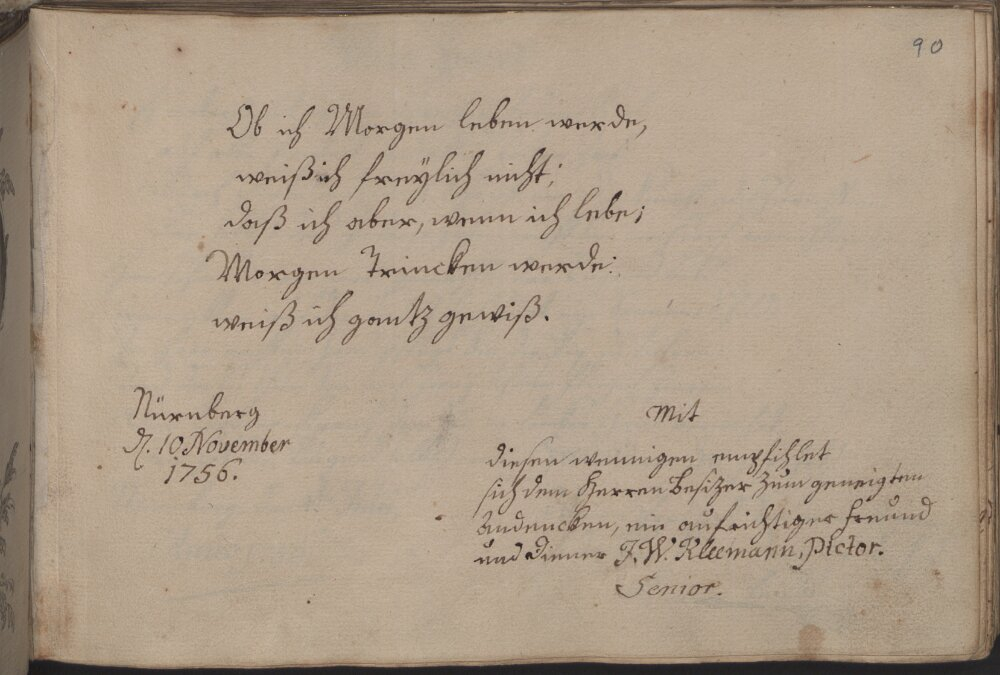 90
Ob ich Morgen leben werde,
weiß ich freÿlich nicht;
daß ich aber, wenn ich lebe;
Morgen Trincken werde:
weiß ich gantz gewiß.
Nürnberg
d. 10 November
1756.
Mit
diesen wennigen empfihlet
sich dem Herren Besitzer zum geneigten
Andencken, ein aufrichtiger Freund
und Diener J. W. Kleemann, Pictor.
Senior.